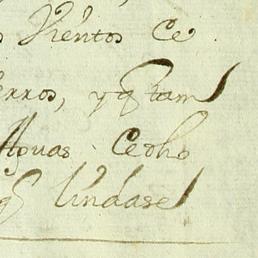 Vientos Ce
erros, y q tam
Aguas Cedho
q lindase